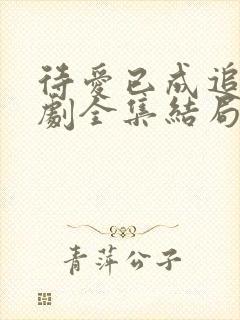 待愛已成追
劇全集結局
青萍公子